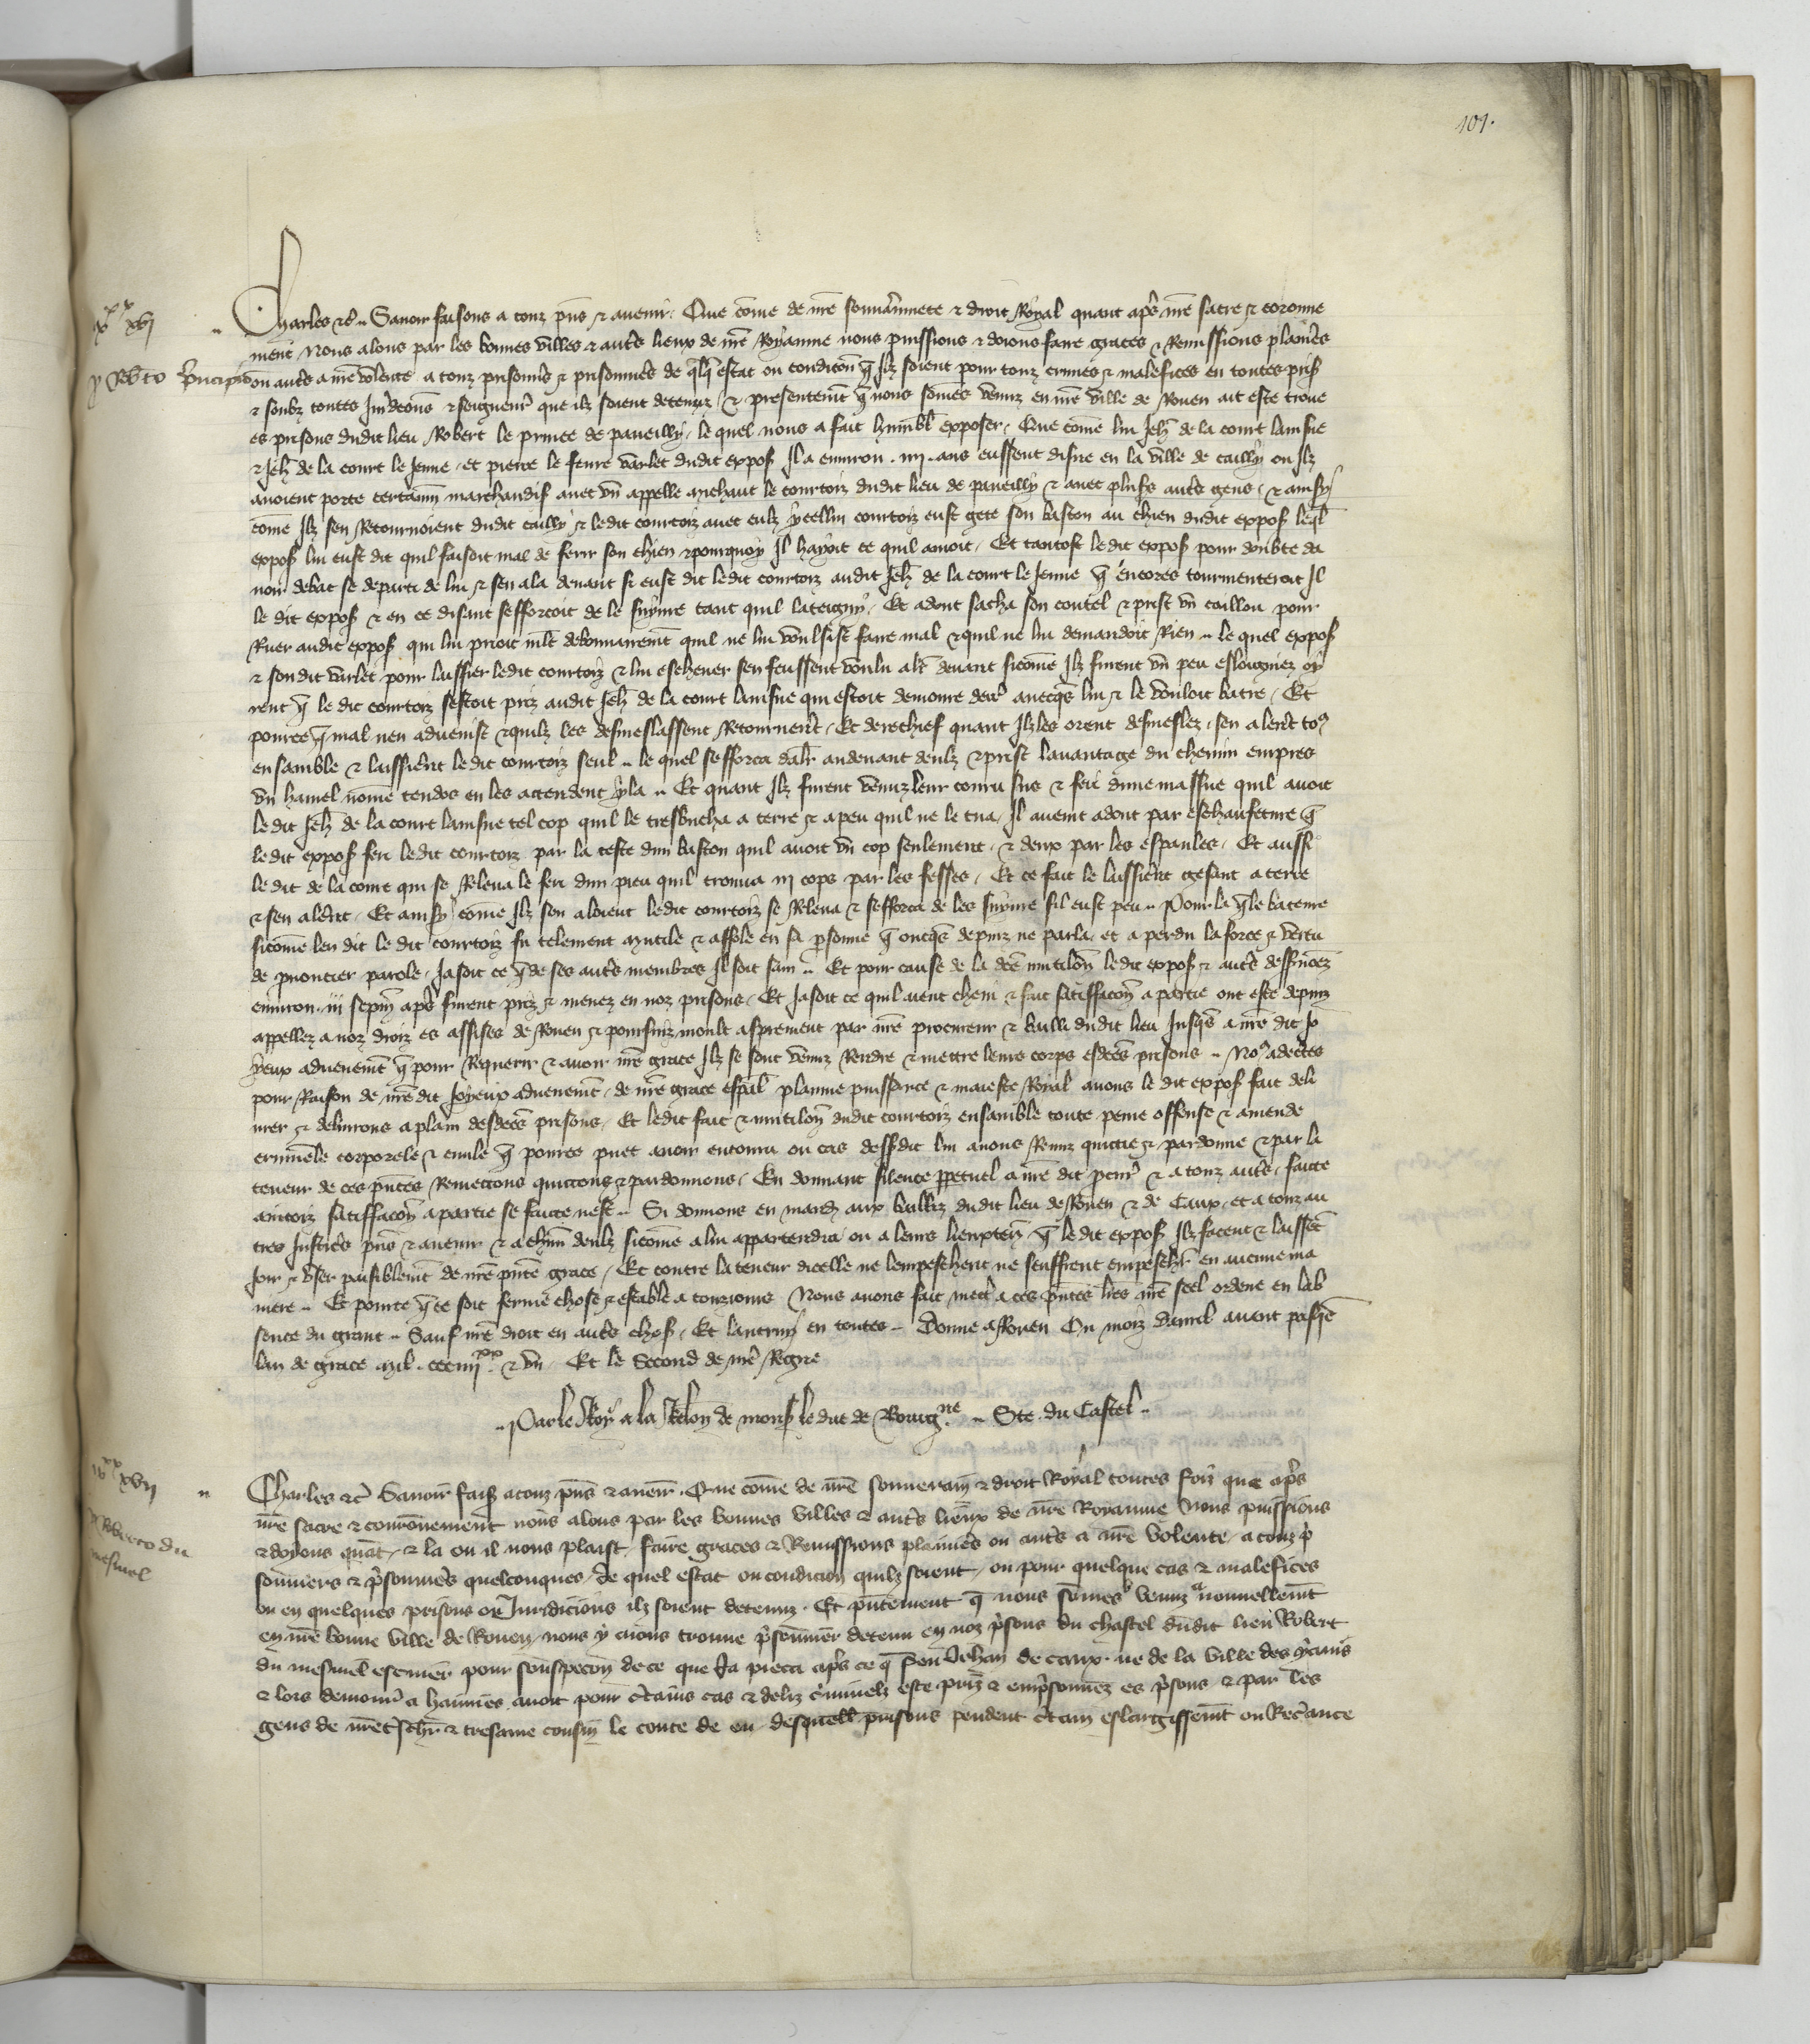 101.
Charles etc. Savoir faisons a touz pñs et avenir. Que cõme de nr̃e souvãinnete et droit Royal quant apr̃s nr̃e sacre et coronne
ment nous alons par les bonnes villes et autr̃s lieux de nr̃e Royaume nous puissions et doions faire graces et Remissions plainer̃s
ou autr̃s a nr̃e volente a touz prisonnr̃s et prisonnier̃s de q̃lq̃ estat ou condicõn q̃ Ilz soient pour touz crimes et malefices en toutes pris
et soubz toutes Jur̃dcõns et seigneur̃ que ilz soient detenuz, et presentemt̃ q̃ nous som̃es venuz en nr̃e ville de Rouen ait este trouve
es prisons dudit lieu Robert le prince de paveilly, le quel nous a fait humbl̃ exposer, Que cõme lui Jeh̃ de la court lainsne
et Jeh̃ de la court le Jenne, et pierre le fevre varlet dudit expos̃ Il a environ .iiii. ans eussent disne en la ville de cailly ou Ilz
avoient porte certainñ marchandis̃ avec vn appelle michaut le courtoiz dudit lieu de paveilly et avec plus̃s autr̃s gens, et ainsy
cõme Ilz sen Retournoient dudit cailly et ledit courtoiz avec eulz ycellui courtoiz eust gete son baston au chien dudit expos̃ leq̃l
expos̃ lui eust dit quil faisoit mal de ferir son chien et pourquoy Il hayoit ce quil amoit, Et tantost le dit expos̃ pour doubte da
voir debat se departi de lui et sen ala devant si eust dit ledit courtoiz audit Jeh̃ de la court le Jenne q̃ encores tourmenteroit Il
le dit expos̃ et en ce disant sefforcoit de le suyvre tant quil lateigny, Et adont sacha son coutel et prist vn caillou pour
Ruer audit expos̃ qui lui prioit ml̃t debonnairemt̃ quil ne lui voulsist faire mal et quil ne lui demandoit Rien .. le quel expos̃
et son dit varlet pour laissier ledit courtoiz et lui eschever sen feussent voulu aler̃ devant sicõme Ilz furent vn peu esloigniez oy
rent q̃ le dit courtoiz sestoit priz audit Jeh̃ de la court lainsne qui estoit demoure derr̃ avecq̃s lui et le vouloit batre, Et
pource q̃ mal nen advenist et quilz les desmeslassent Retournerẽt, Et derechief quant Ilz les orent desmeslez, sen alerẽt to9
ensamble et laissierẽt le dit courtoiz seul .. le quel sefforca daler̃ audevant deulz et prist lavantage du chemin empres
vn hamel nõme tendos en les attendent yla .. Et quant Ilz furent venuz leur couru sus et feri dune massue quil avoit
le dit Jeh̃ de la court lainsne tel cop quil le tresbucha a terre et a peu quil ne le tua, Il avint adont par eschaufeture q̃
ledit expos̃ feri ledit courtoiz par la teste dun baston quil avoit vn cop seulement, et deux par les espaules, Et aussi
le dit de la court qui se Releva le feri dun pieu quil trouva iii cops par les fesses, Et ce fait le laissierẽt gesant a terre
et sen alerẽt, Et ainsy cõme Ilz sen aloient ledit courtoiz se Releva et sefforca de les suyvre sil eust peu .. Pour la q̃le bateure
sicõme len dit le dit courtoiz fu telement mutile et affole en sa p̃sonne q̃ oncq̃s depuiz ne parla, et a perdu la force et vertu
de pnoncier parole, Jasoit ce q̃ de ses autr̃s membres Il soit sain .. Et pour cause de la dcẽ mutilcõn ledit expos̃ et autr̃s dessnõmez
environ .iii. sepm̃ apr̃s furent priz et menez en noz prisons, Et Jasoit ce quil aient chevi et fait satiffacõn a partie ont este depuiz
appellez a noz droiz es assises de Rouen et poursuiz moult asprement par nr̃e procureur et bailli dudit lieu Jusq̃s a nr̃e dit Jo
yeux advenemt̃ q̃ pour Requerir et avoir nr̃e grace Ilz se sont venuz Rendre et mettre leurs corps esdcẽs prisons .. No9 adecertes
pour Raison de nr̃e dit Joyeux advenemt̃, de nr̃e grace espãl plainne puissance et maieste Royal avons le dit expos̃ fait deli
vrer et delivrons a plain desdcẽs prisons, Et ledit fait et mutilcõn dudit courtoiz ensamble toute peine offense et amende
criminele corporele et civile q̃ pource puet avoir encouru ou cas dessusdit lui avons Remiz quictie et pardonne et par la
teneur de ces pñtes Remettons quictons et pardonnons, En donnant silence ppetuel a nr̃e dit pcur̃ et a touz autr̃s, faicte
aincoiz satiffacõn a partie se faicte nest .. Si donnons en mand̃ aux bailliz dudit lieu de Rouen et de Caux, et a touz au
tres Justicier̃s pñs et avenir et a chũn deulz sicõme a lui appartendra ou a leurs lieuxten̄ q̃ le dit expos̃ Ilz facent et laissẽt
Joir et vser paisiblemt̃ de nr̃e pñte grace, Et contre la teneur dicelle ne lempeschent ne seuffrent empeschier̃ en aucune ma
niere .. Et pource q̃ ce soit ferme chose et estable a touziours Nous avons fait mettr̃ a ces pñtes lr̃es nr̃e scel ordene en lab
sence du grant .. Sauf nr̃e droit en autr̃s chos̃, Et lautruy en toutes .. Donne a Rouen Ou moiz davril avant pasq̃s
lan de grace mil .ccciiii xx. et vn, Et le Second de nr̃e Regne
.. Par le Roy a la Relcõn de mons̃ le duc de Bourg.ne .. Ste. du Castel ..
Charles etc̃ Savoir fais̃ a touz pñs et avenir̃. Que cõme de nr̃e souverain̄ et droit Royal toutes foiz que apr̃s
nr̃e sacre et couronnement nous alons par les bonnes villes et autr̃s lieux de nr̃e Royaume Nous puissions
et doyons quant, et la ou il nous plaist faire graces et Remissions plainier̃s ou autr̃s a nr̃e volente a touz p̃
sonniers et p̃sonnier̃s quelconques, de quel estat ou condicion quilz soient, ou pour quelque cas et malefices
ou en quelques prisons ou Juridicions ilz soient detenuz. Et pñtement q̃ nous som̃es venuz nouvellemt̃
en nr̃e bonne ville de Rouen, nous y aions trouve p̃sonnier̃ detenu en noz p̃sons du chastel dudit lieu Robert
du mesnil escuier̃ pour souspecon̄ de ce que Ja pieca apr̃s ce q̃ feu Jehan de caux, ne de la ville des
et lors demour̃ a avoit pour c̃tains cas et deliz c̃iminelz este priz et emp̃sonnez es p̃sons et par les
gens de nr̃e t̃schr̃ et tresame cousin le conte de eu, desquell̃ prisons pendent c̃tain eslargissemt̃ ou Recr̃ance
iiii xx xvi
p Rob̃to principis
iiii xx xvii
p Roberto du
mesnil